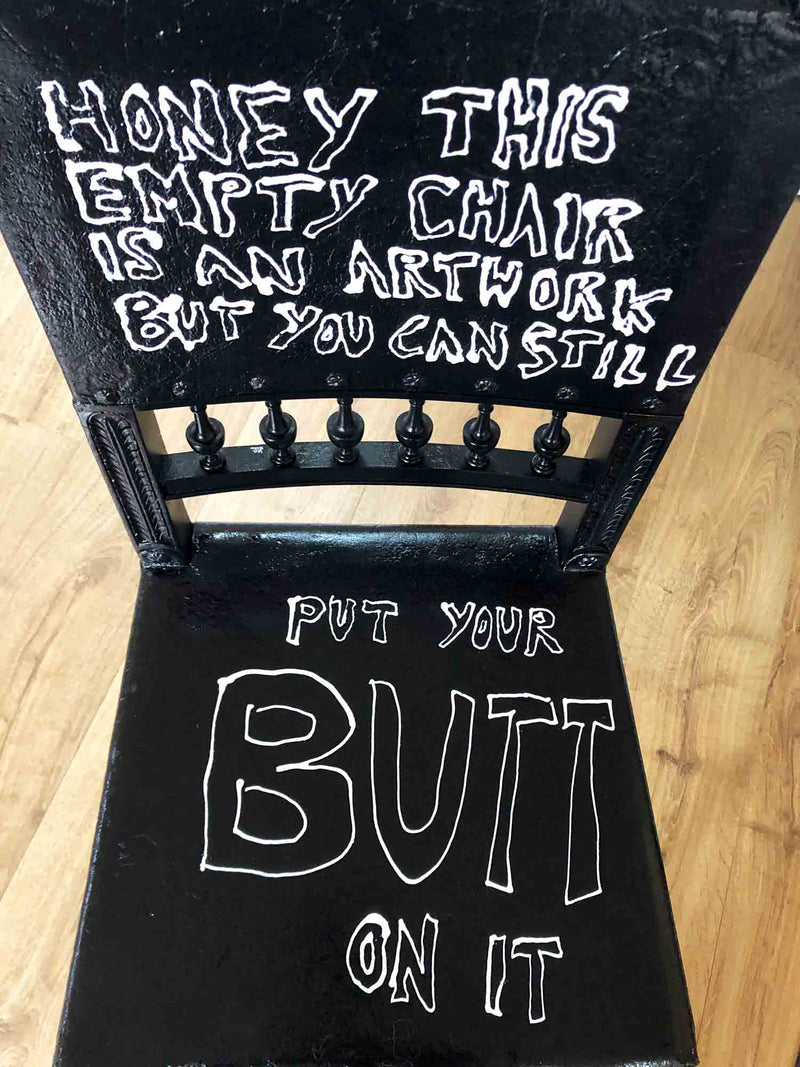 HONEY THIS
EMPTY CHAIR
IS AN ARTWORK
BUT YOU CAN STILL
PUT YOUR
BUTT
ON IT